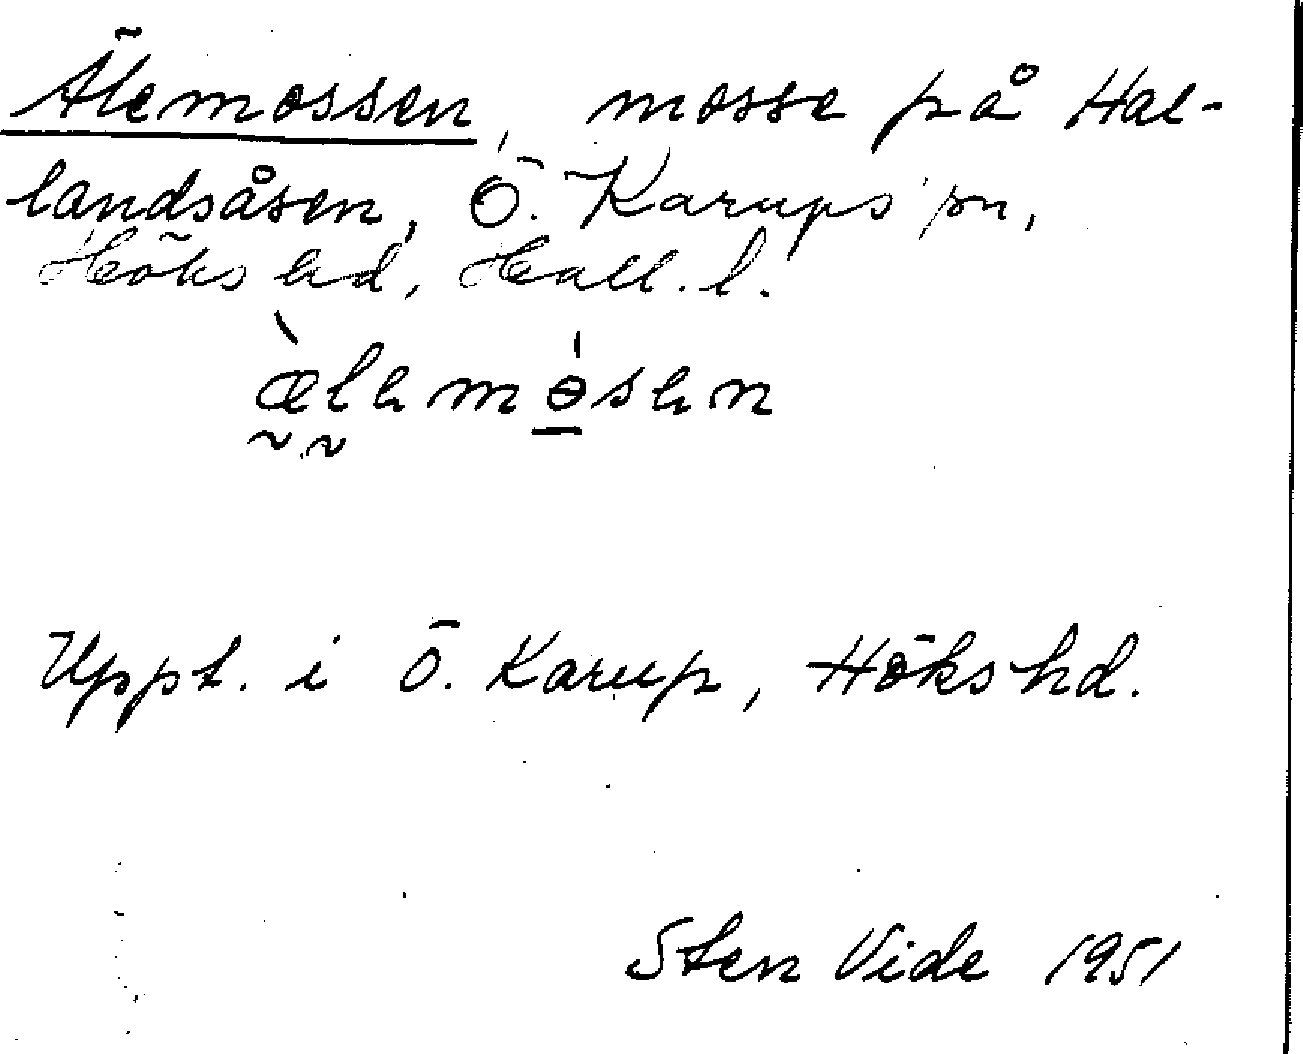 Älemossen, mosse på Hal-
landsåsen, Ö. Karups sn,
Höks hd, Hall. l.
æ̀lem ɵ́sen
Uppt. i Ö. Karup, Höks hd.
Sten Vide 1951